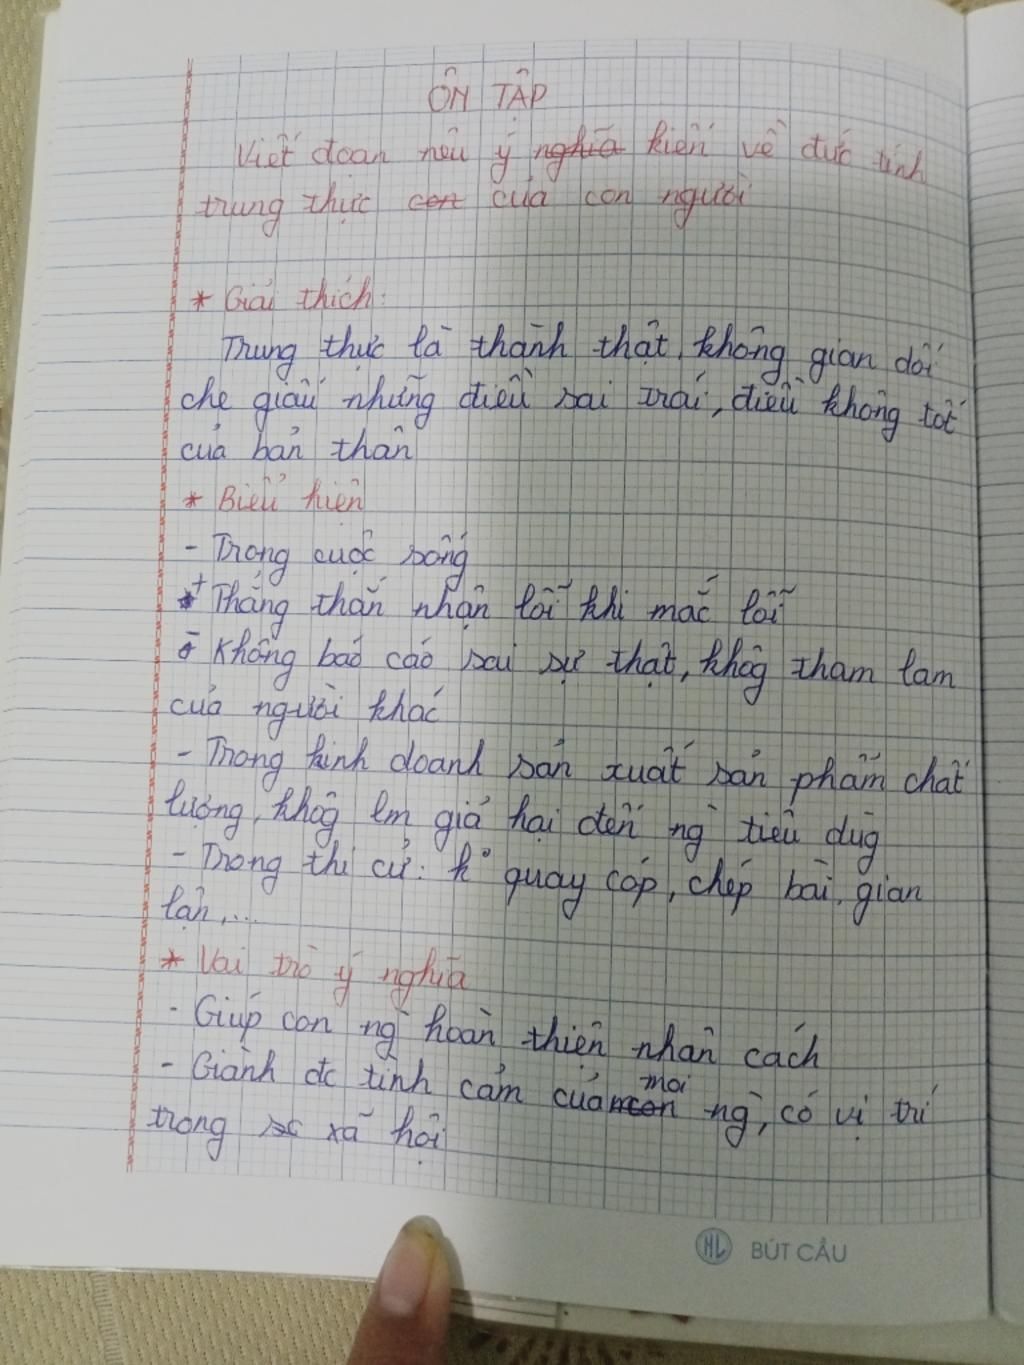 ÔN TẬP
Viết đoạn nêu ý nghĩa kiến về đức tính
trung thực con của con người
* Giải thích:
Trung thực là thành thật, không gian dối
che giấu những điều sai trái, điều không tốt
của bản thân
* Biểu hiện
- Trong cuộc sống
+ Thẳng thắn nhận lỗi khi mắc lỗi
- Không báo cáo sai sự thật, khôg tham lam
của người khác
- Trong kinh doanh sản xuất sản phẩm chất
lượng, khôg lm giả hại đến ng` tiêu dùg
- Trong thi cử: k° quay cóp, chép bài, gian
lận,...
* Vai trò ý nghĩa
- Giúp con ng` hoàn thiện nhân cách
- Giành đc tình cảm của con mọi ng`, có vị trí
trong xã hội
HL BÚT CẦU